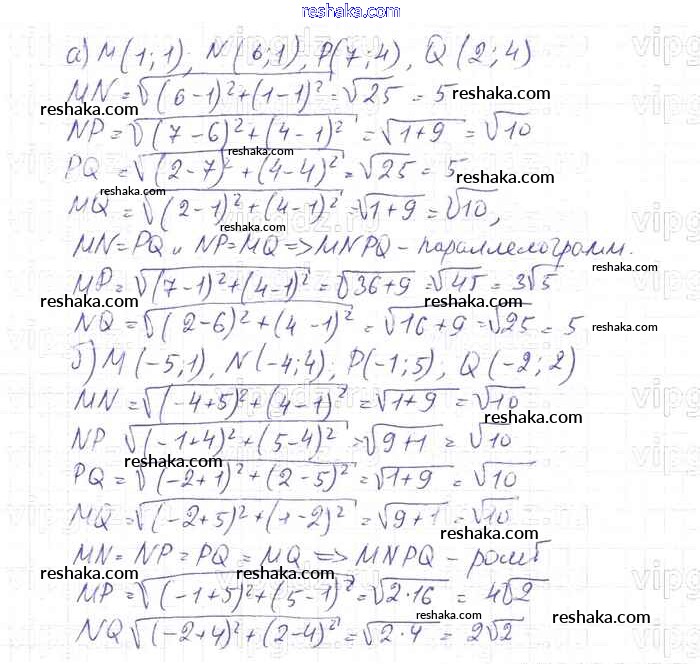 reshaka.com
а) M(1;1), N(6;1), P(7;4), Q(2;4)
MN = √(6-1)²+(1-1)² = √25 = 5 reshaka.com
reshaka.com
NP = √(7-6)²+(4-1)² = √1+9 = √10
reshaka.com
PQ = √(2-7)²+(4-4)² = √25 = 5
reshaka.com
reshaka.com
MQ = √(2-1)²+(4-1)² = √1+9 = √10,
MN=PQ и NP=MQ => MNPQ - параллелограмм.
reshaka.com
MP = √(7-1)²+(4-1)² = √36+9 = √45 = 3√5
reshaka.com reshaka.com
NQ = √(2-6)²+(4-1)² = √16+9 = √25 = 5 reshaka.com
б) M(-5;1), N(-4;4), P(-1;5), Q(-2;2)
MN = √(-4+5)²+(4-1)² = √1+9 = √10
reshaka.com
NP √(-1+4)²+(5-4)² = √9+1 = √10
reshaka.com
PQ = √(-2+1)²+(2-5)² = √1+9 = √10
MQ = √(-2+5)²+(1-2)² = √9+1 = √10
reshaka.com
MN = NP = PQ = MQ => MNPQ - ромб
reshaka.com reshaka.com
MP = √(-1+5)²+(5-1)² = √2·16 = 4√2
reshaka.com reshaka.com
NQ √(-2+4)²+(2-4)² = √2·4 = 2√2
reshaka.com